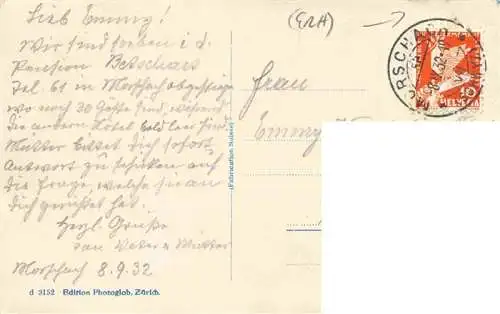 Lieb Emmy!
Wir sind soeben i. d.
Pension Betschart
Tel. 61 in Morschach abgestiegen
wo noch 30 Gäste sind, während
die andern Hotel bald leer sind.
Mutter bittet dich sofort
Antwort zu schicken auf
die Frage, welche sie an
dich gerichtet hat.
Herzl. Grüße
von Vater & Mutter
Morschach 8.9.32
d 3152 Edition Photoglob, Zürich.
(Fabrication Suisse)
Frau
Emmy
10
HELVETIA